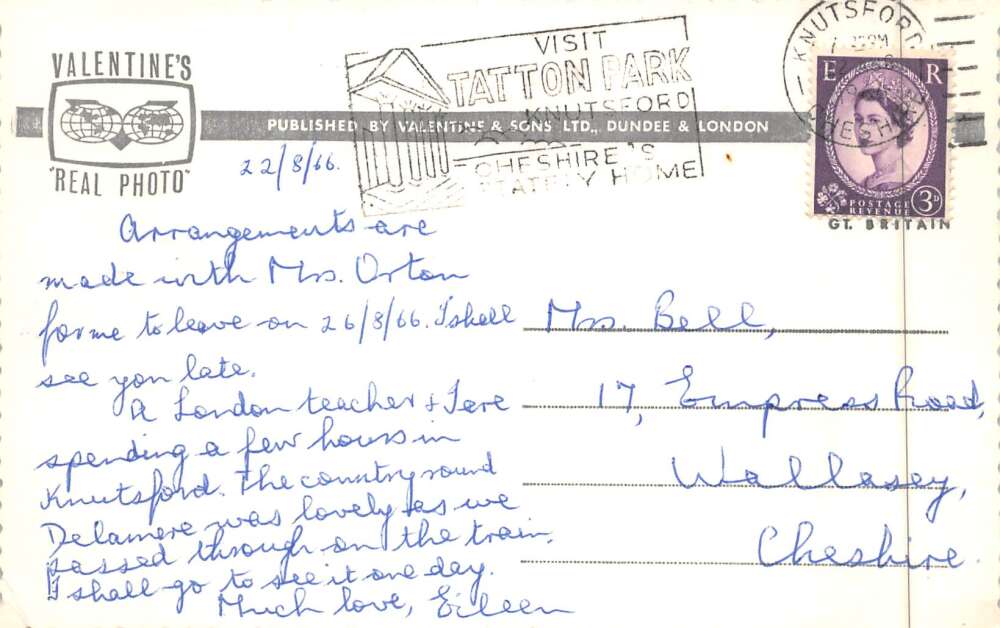 VALENTINE'S
"REAL PHOTO"
PUBLISHED BY VALENTINE & SONS LTD., DUNDEE & LONDON
VISIT
TATTON PARK
KNUTSFORD
CHESHIRE'S
STATELY HOME
KNUTSFORD
CHESHIRE
E R
POSTAGE
REVENUE
3D
GT. BRITAIN
22/8/66.
Arrangements are
made with Mrs. Orton
for me to leave on 26/8/66. I shall
see you late.
A London teacher & I are
spending a few hours in
Knutsford. The country round
Delamere was lovely as we
passed through on the train.
I shall go to see it one day.
Much love, Eileen
Mrs. Bell,
17, Empress Road,
Wallasey,
Cheshire.